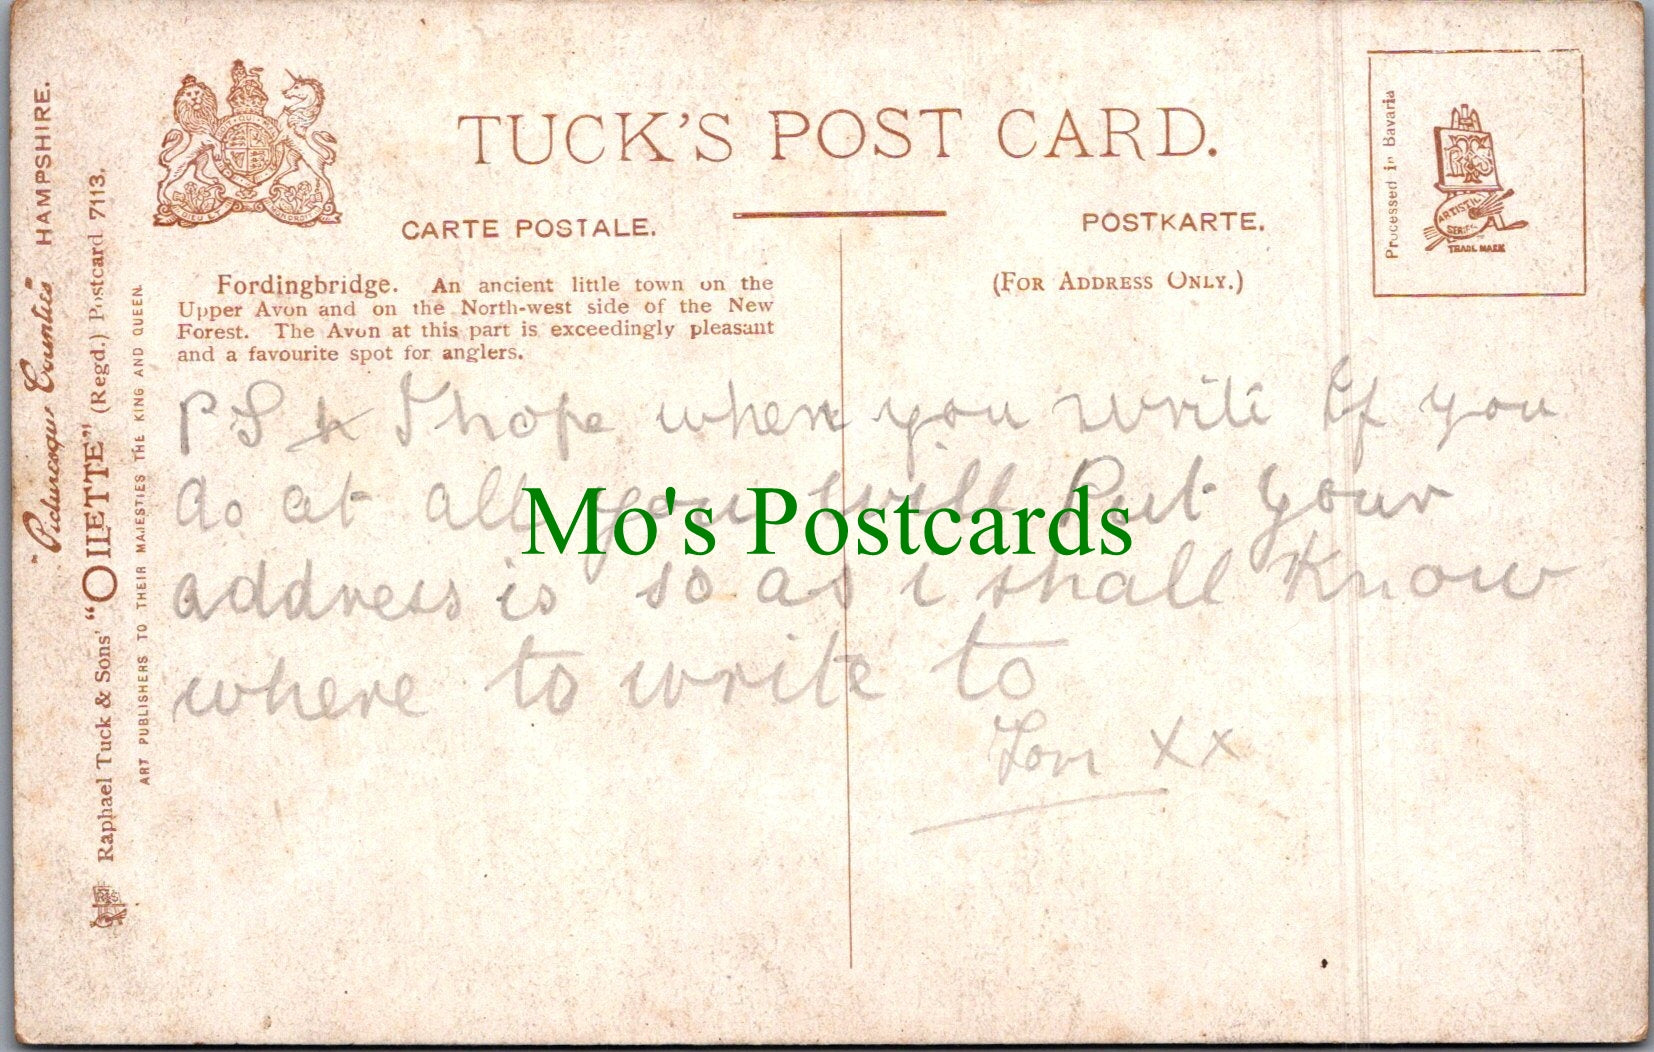 "Picturesque Counties" HAMPSHIRE.
Raphael Tuck & Sons' "OILETTE" (Regd.) Postcard 7113.
ART PUBLISHERS TO THEIR MAJESTIES THE KING AND QUEEN.
TUCK'S POST CARD.
CARTE POSTALE.
POSTKARTE.
(FOR ADDRESS ONLY.)
Processed in Bavaria
ARTISTIC
SERIES
TRADE MARK
Fordingbridge. An ancient little town on the
Upper Avon and on the North-west side of the New
Forest. The Avon at this part is exceedingly pleasant
and a favourite spot for anglers.
PS I hope when you write if you
do at all you will Put your
address is so as i shall Know
where to write to
Love xx
Mo's Postcards